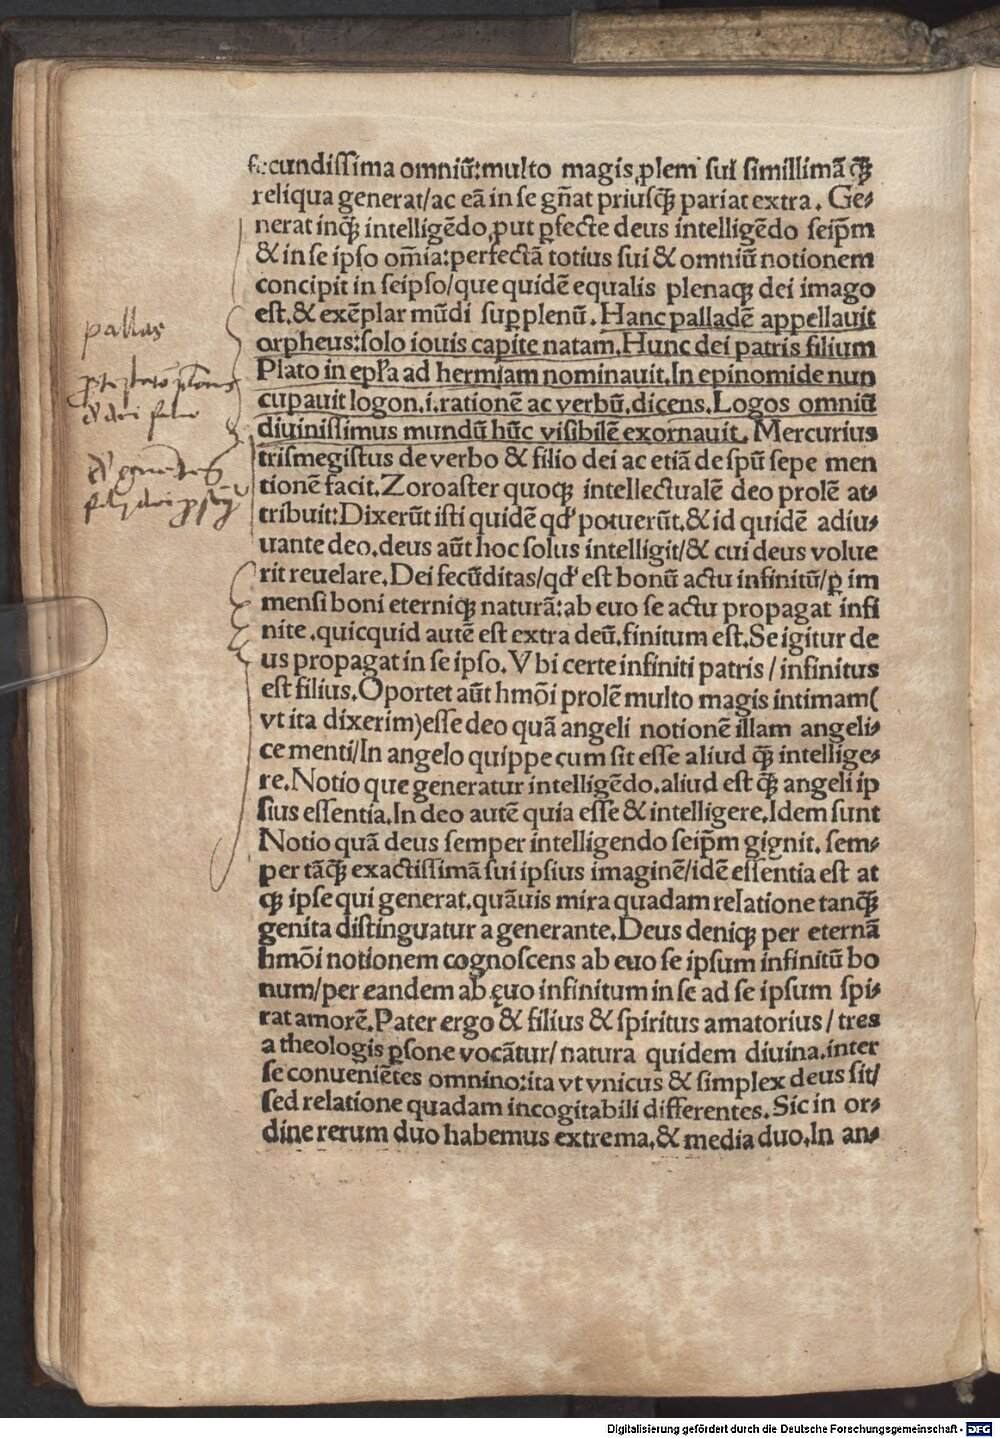 fecundissima omniū:multo magis ꝓlem sui simillimā ꝙ̃
reliqua generat/ac eā in se gn̄at priusꝙ̃ pariat extra. Ge⸗
nerat inꝙ̃ intelligēdo ꝓut ꝑfecte deus intelligēdo seip̄m
& in se ipso om̄ia:perfectā totius sui & omniū notionem
concipit in seipso/que quidē equalis plenaqꝫ dei imago
est.& exēplar mūdi suꝑplenū.Hanc palladē appellauit
orpheus:solo iouis capite natam.Hunc dei patris filium
Plato in epl'a ad hermiam nominauit.In epinomide nun
cupauit logon.i.rationē ac verbū.dicens.Logos omniū
diuinissimus mundū hūc visibilē exornauit. Mercurius
trismegistus de verbo & filio dei ac etiā de spū sepe men
tionē facit.Zoroaster quoqꝫ intellectualē deo prolē at⸗
tribuit:Dixerūt isti quidē qd' potuerūt.& id quidē adiu⸗
uante deo.deus aūt hoc solus intelligit/& cui deus volue
rit reuelare.Dei fecūditas/qd' est bonū actu infinitū/ꝑ im
mensi boni eterniqꝫ naturā:ab euo se actu propagat infi
nite.quicquid autē est extra deū.finitum est.Se igitur de
us propagat in se ipso.Vbi certe infiniti patris/infinitus
est filius.Oportet aūt hmōi prolē multo magis intimam(
vt ita dixerim)esse deo quā angeli notionē illam angeli⸗
ce menti/In angelo quippe cum sit esse aliud ꝙ̃ intellige⸗
re.Notio que generatur intelligēdo.aliud est ꝙ̃ angeli ip
sius essentia.In deo autē quia esse & intelligere.Idem sunt
Notio quā deus semper intelligendo seip̄m gignit. sem⸗
per tāꝙ̃ exactissimā sui ipsius imaginē/idē essentia est at
qꝫ ipse qui generat.quāuis mira quadam relatione tanꝙ̃
genita distinguatur a generante.Deus deniqꝫ per eternā
hmōi notionem cognoscens ab euo se ipsum infinitū bo
num/per eandem ab ęuo infinitum in se ad se ipsum spi⸗
rat amorē.Pater ergo & filius & spiritus amatorius/tres
a theologis ꝑsone vocātur/natura quidem diuina.inter
se conueniētes omnino:ita vt vnicus & simplex deus sit/
sed relatione quadam incogitabili differentes.Sic in or⸗
dine rerum duo habemus extrema.& media duo.In an⸗
pallas
Digitalisierung gefördert durch die Deutsche Forschungsgemeinschaft - DFG